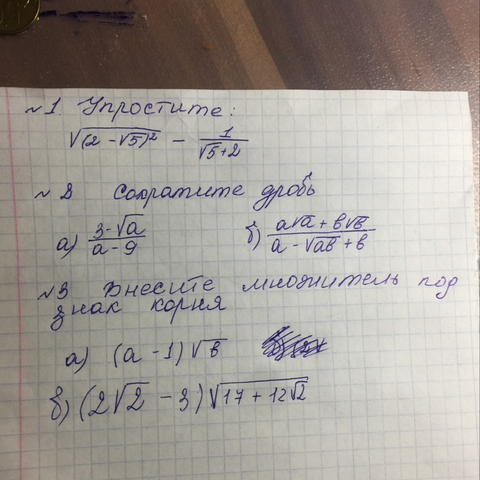 №1. Упростите:
√(2 - √5)² - 1/(√5+2)
№2 Сократите дробь
а) (3-√a)/(a-9) б) (a√a + b√b)/(a - √ab + b)
№3 Внесите множитель под
знак корня
а) (a - 1)√b
б) (2√2 - 3)√(17 + 12√2)